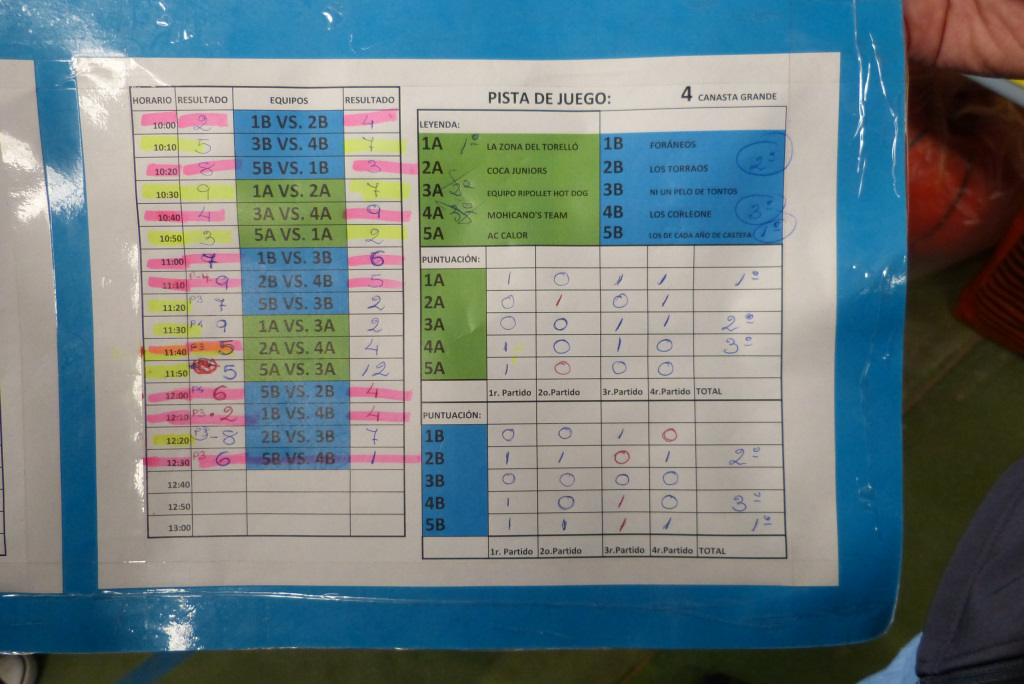 HORARIO RESULTADO EQUIPOS RESULTADO
10:00 2 1B VS. 2B 4
10:10 5 3B VS. 4B 7
10:20 8 5B VS. 1B 3
10:30 9 1A VS. 2A 7
10:40 4 3A VS. 4A 9
10:50 3 5A VS. 1A 2
11:00 7 1B VS. 3B 6
11:10 P-4 9 2B VS. 4B 5
11:20 P3 7 5B VS. 3B 2
11:30 P4 9 1A VS. 3A 2
11:40 P3 5 2A VS. 4A 4
11:50 5 5A VS. 3A 12
12:00 P4 6 5B VS. 2B 4
12:10 P3 2 1B VS. 4B 4
12:20 P3-8 2B VS. 3B 7
12:30 P3 6 5B VS. 4B 1
12:40
12:50
13:00
PISTA DE JUEGO: 4 CANASTA GRANDE
LEYENDA:
1A 1º LA ZONA DEL TORELLÓ 1B FORÁNEOS
2A COCA JUNIORS 2B LOS TORRAOS 2º
3A EQUIPO RIPOLLET HOT DOG 3B NI UN PELO DE TONTOS
4A MOHICANO'S TEAM 4B LOS CORLEONE 3º
5A AC CALOR 5B LOS DE CADA AÑO DE CASTEFA 1º
PUNTUACIÓN:
1A 1 0 1 1 1º
2A 0 1 0 1
3A 0 0 1 1 2º
4A 1 0 1 0 3º
5A 1 0 0 0
1r. Partido 2o.Partido 3r.Partido 4r.Partido TOTAL
PUNTUACIÓN:
1B 0 0 1 0
2B 1 1 0 1 2º
3B 0 0 0 0
4B 1 0 1 0 3º
5B 1 1 1 1 1º
1r. Partido 2o.Partido 3r.Partido 4r.Partido TOTAL